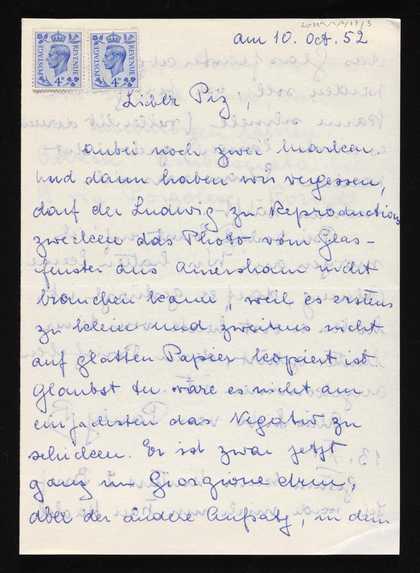 POSTAGE REVENUE 4D POSTAGE REVENUE 4D
am 10. Oct. 52
Lieber Piz,
anbei noch zwei Marken.
Und dann haben wir vergessen,
daß der Ludwig zu Reproductions
zwecken das Photo vom Glas-
fenster aus Amersham nicht
brauchen kann, weil es erstens
zu klein und zweitens nicht
auf glatten Papier kopiert ist
Glaubst du wäre es nicht am
einfachsten das Negativ zu
schicken. Er ist zwar jetzt
ganz im Giorgione drin,
aber der andere Aufsatz, in dem